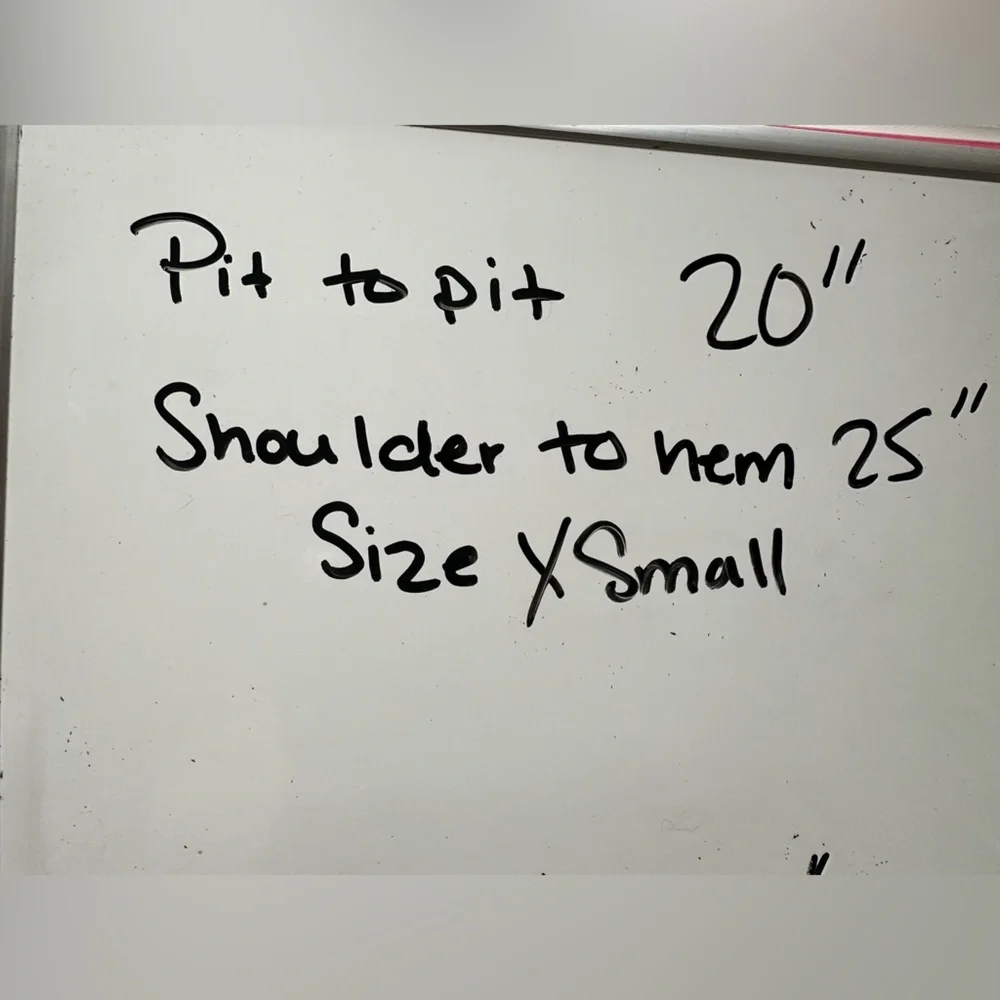 Pit to pit 20"
Shoulder to hem 25"
Size XSmall